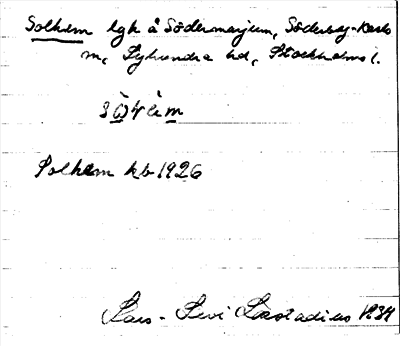 Solhem lgh å Södermarjum, Söderby-Karls
sn, Lyhundra hd, Stockholms l.
Solhem kb 1926
Lars-Levi Læstadius 1934